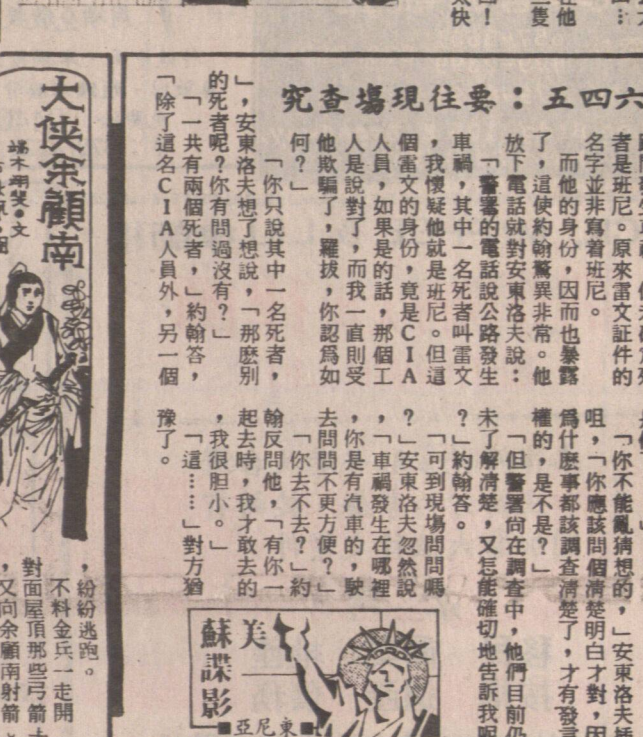 六四五：要往現塲查究
者是班尼。原來雷文証件的
名字並非寫着班尼。
而他的身份，因而也暴露
了，這使約翰驚異非常。他
放下電話就對安東洛夫說：
「警署的電話說公路發生
車禍，其中一名死者叫雷文
，我懷疑他就是班尼。但這
個雷文的身份，竟是CIA
人員，如果是的話，那個工
人是說對了，而我一直則受
他欺騙了，羅拔，你認爲如
何？」
「你只說其中一名死者，
」，安東洛夫想了想說，「那麽別
的死者呢？你有問過沒有？」
「一共有兩個死者，」約翰答，
「除了這名CIA人員外，另一個
「你不能亂猜想的，」安東洛夫插
咀，「你應該問個清楚明白才對，因
爲什麽事都該調查清楚了，才有發言
權的，是不是？」
「但警署尙在調查中，他們目前仍
未了解清楚，又怎能確切地告訴我呢
？」約翰答。
「可到現場問問嗎
？」安東洛夫忽然說
，「車禍發生在哪裡
，你是有汽車的，駛
去問問不更方便？」
「你去不去？」約
翰反問他，「有你一
起去時，我才敢去的
，我很胆小。」
「這……」對方猶
豫了。
美蘇諜影
■亞尼東■
大俠余顧南
端木翎雙●文
，紛紛逃跑。
不料金兵一走開
對面屋頂那些弓箭
，又向余顧南射箭